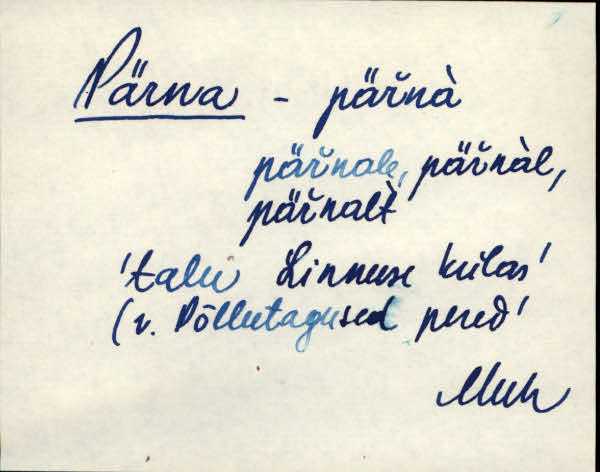 Pärna - pär̆nà
pär̆nale, pär̆nàl,
pär̆nalt̀
'talu Linnuse külas'
(v. Põllutagused pered'
Muh